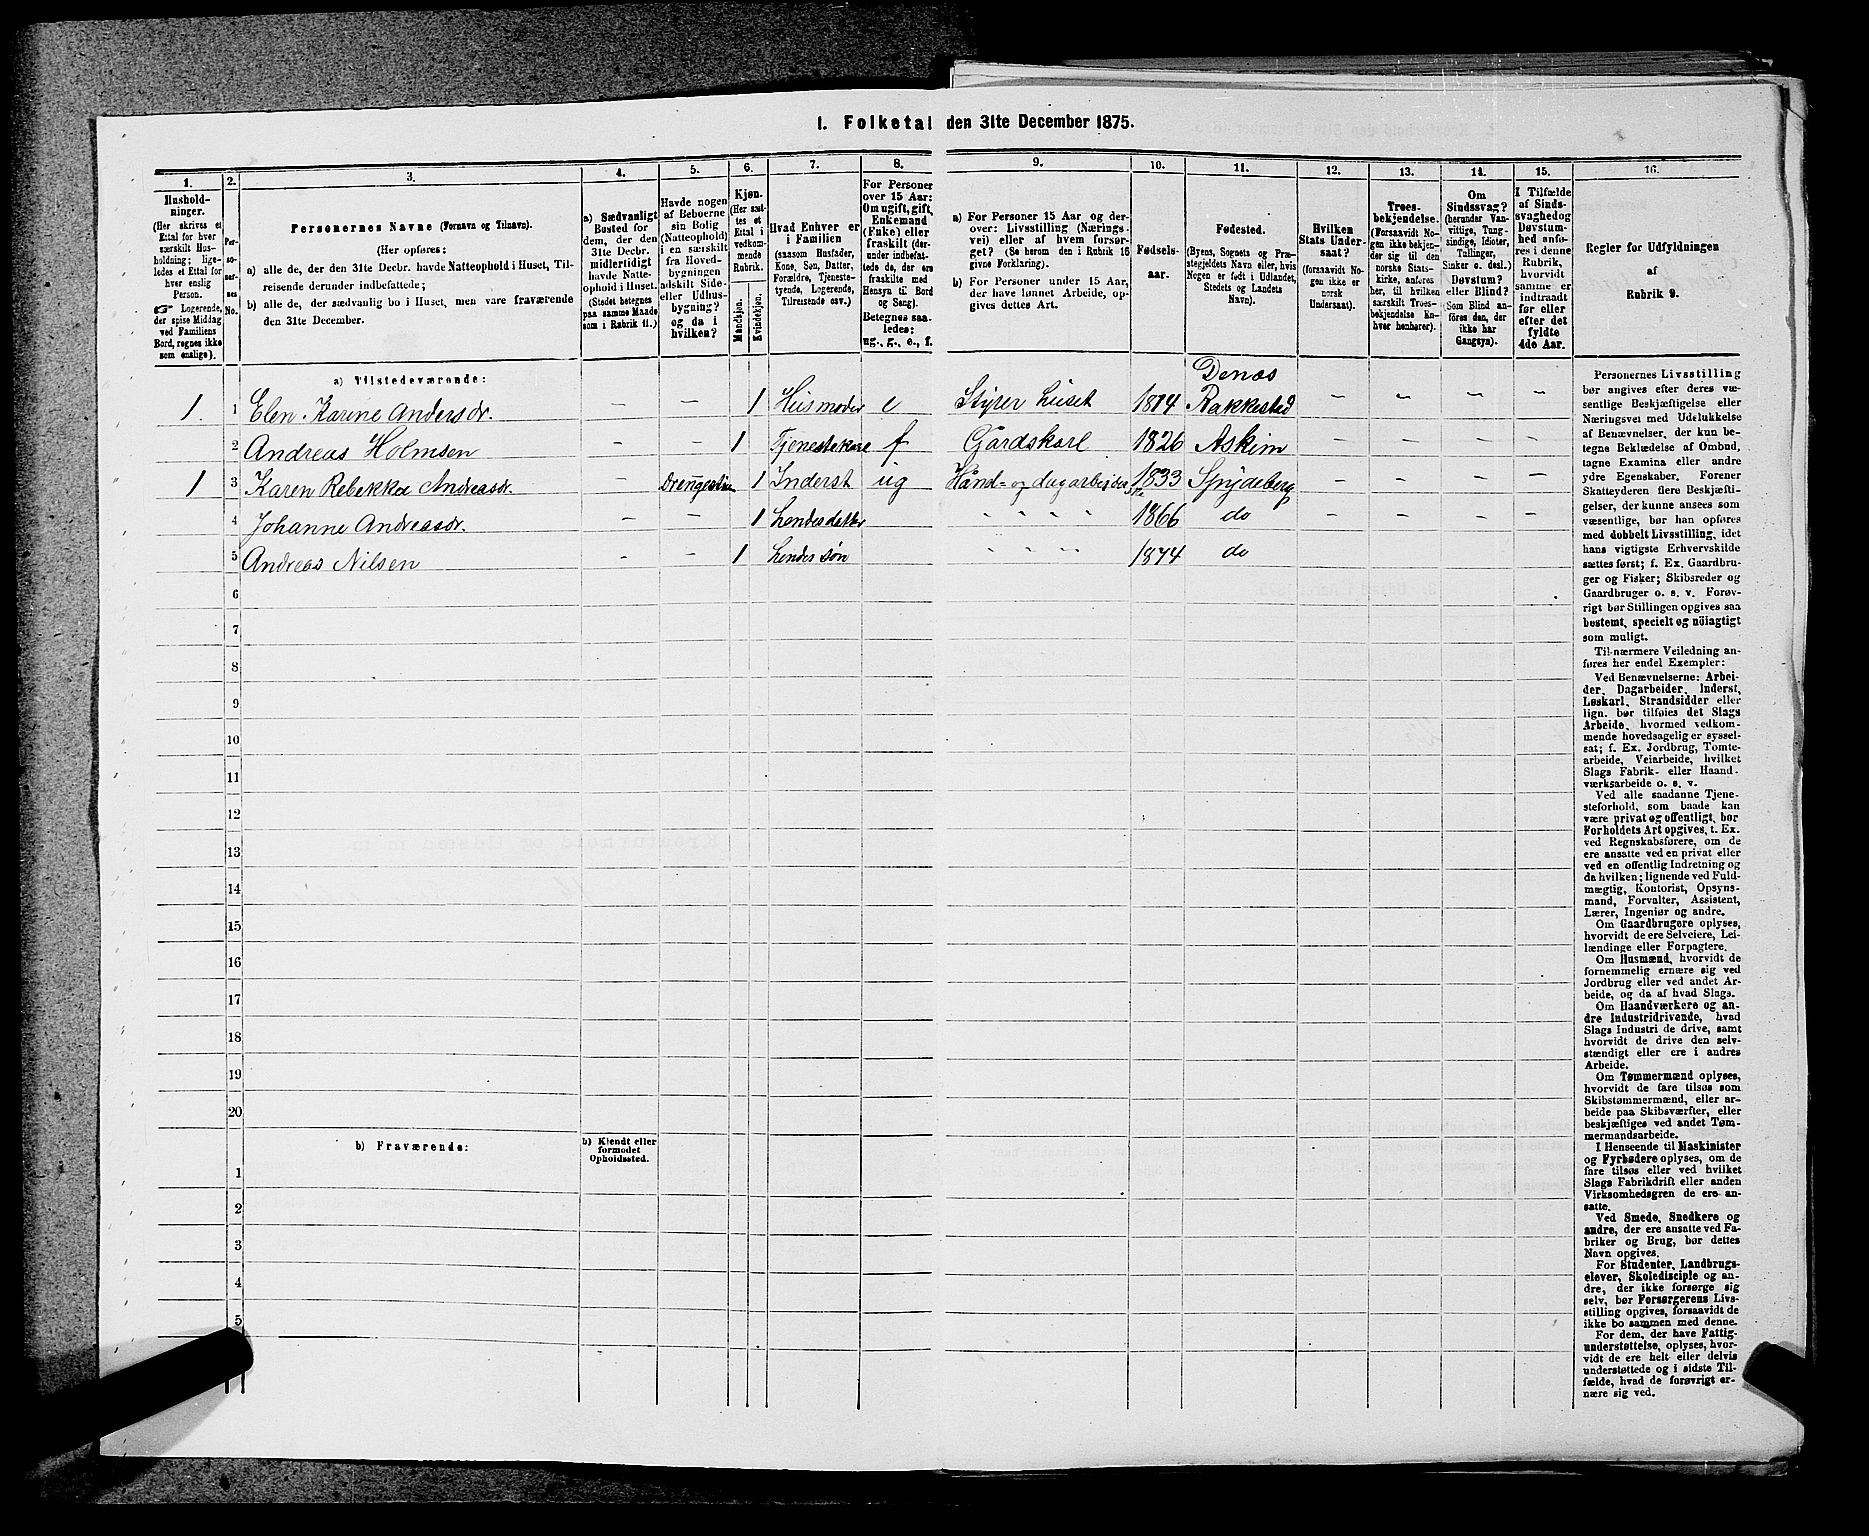 1. Folketal den 31te December 1875.
1.
2.
3.
4.
5.
6.
7.
8.
9.
10.
11.
12.
13.
14.
15.
16.
Hushold-
ninger.
(Her skrives et
Ettal for hver
særskilt Hus-
holdning; lige-
ledes et Ettal for
hver enslig
Person.
☞ Logerende,
der spise Middag
ved Familiens
Bord, regnes ikke
som enslige).
Per-
so-
ner-
nes
No.
Personernes Navne (Fornavn og Tilnavn).
(Her opføres:
a) alle de, der den 31te Decbr. havde Natteophold i Huset, Til-
reisende derunder indbefattede;
b) alle de, der sædvanlig bo i Huset, men vare fraværende
den 31te December.
a) Sædvanligt
Bosted for
dem, der den
31te Decbr.
midlertidigt
havde Natte-
ophold i Huset.
(Stedet betegnes
paa samme Maade
som i Rubrik 11.)
Havde nogen
af Beboerne
sin Bolig
(Natteophold)
i en særskilt
fra Hoved-
bygningen
adskilt Side-
eller Udhus-
bygning?
og da i
hvilken?
Kjøn.
(Her sæt-
tes et
Ettal i
vedkom-
mende
Rubrik.
Mandkjøn.
Kvindekjøn.
Hvad Enhver er
i Familien
(saasom Husfader,
Kone, Søn, Datter,
Forældre, Tjeneste-
tyende, Logerende,
Tilreisende osv.)
For Personer
over 15 Aar:
Om ugift, gift,
Enkemand
(Enke) eller
fraskilt (der-
under indbefat-
tede de, der ere
fraskilte med
Hensyn til Bord
og Seng).
Betegnes saa-
ledes:
ug., g., e., f.
a) For Personer 15 Aar og der-
over: Livsstilling (Nærings-
vei) eller af hvem forsør-
get? (Se herom den i Rubrik 16
givne Forklaring).
b) For Personer under 15 Aar,
der have lønnet Arbeide, op-
gives dettes Art.
Fødsels-
aar.
Fødested.
(Byens, Sognets og Præ-
stegjeldets Navn eller, hvis
Nogen er født i Udlandet,
Stedets og Landets
Navn).
Hvilken
Stats Under-
saat?
(forsaavidt No-
gen ikke er
norsk
Undersaat).
Troes-
bekjendelse.
(Forsaavidt No-
gen ikke bekjen-
der sig til den
norske Stats-
kirke, anføres
her, til hvilken
særskilt Troes-
bekjendelse En-
hver henhører).
Om
Sindssvag?
(herunder Van-
vittige, Tung-
sindige, Idioter,
Tullinger,
Sinker o. desl.)
Døvstum?
eller Blind?
Som Blind an-
føres den, der
ikke har
Gangsyn).
I Tilfælde
af Sinds-
svaghed og
Døvstum-
hed anfø-
res i denne
Rubrik,
hvorvidt
samme er
indtraadt
før eller
efter det
fyldte
4de Aar.
Regler for Udfyldningen
af
Rubrik 9.
a) Tilstedeværende:
1. 1 Elen Karine Andersdr. — — 1 Husmoder e Styrer huset 1814 Denes Rakkestad — — — —
2 Andreas Holmsen — — 1 Tjenestekarl f Gårdskarl 1826 Askim — — — —
1 3 Karen Rebekka Andreasdr. — 1 Inderst ug Hånd- og dagarbejder 1833 Spydeberg — — — —
4 Johanne Andreasdr. — — 1 hendes datter " " " " 1866 do — — — —
5 Andreas Nilsen — — 1 hendes søn " " " 1874 do
6
7
8
9
10
11
12
13
14
15
16
17
18
19
20
b) Fraværende:
b) Kjendt eller
formodet
Opholdssted.
1
2
3
4
5
Personernes Livsstilling
bør angives efter deres væ-
sentlige Beskjæftigelse eller
Næringsvei med Udelukkelse
af Benævnelser, der kun be-
tegne Beklædelse af Ombud,
tagne Examina eller andre
ydre Egenskaber. Forener
Skatteyderen flere Beskjæfti-
gelser, der kunne ansees som
væsentlige, bør han opføres
med dobbelt Livsstilling, idet
hans vigtigste Erhvervskilde
sættes først; f. Ex. Gaardbru-
ger og Fisker; Skibsreder og
Gaardbruger o. s. v. Forøv-
rigt bør Stillingen opgives saa
bestemt, specielt og nöiagtigt
som muligt.
Til nærmere Veiledning an-
føres her endel Exempler:
Ved Benævnelserne: Arbei-
der, Dagarbeider, Inderst,
Løskarl, Strandsidder eller
lign. bør tilføies det Slags
Arbeide, hvormed vedkom-
mende hovedsagelig er syssel-
sat; f. Ex. Jordbrug, Tomte-
arbeide, Veiarbeide, hvilket
Slags Fabrik- eller Haand-
værksarbeide o. s. v.
Ved alle saadanne Tjene-
steforhold, som baade kan
være privat og offentligt, bør
Forholdets Art opgives, t. Ex.
ved Regnskabsførere, om de
ere ansatte ved en privat eller
ved en offentlig Indretning og
da hvilken; lignende ved Fuld-
mægtig, Kontorist, Opsyns-
mand, Forvalter, Assistent,
Lærer, Ingeniør og andre.
Om Gaardbrugere oplyses,
hvorvidt de ere Selveiere, Lei-
lændinge eller Forpagtere.
Om Husmænd, hvorvidt de
fornemmelig ernære sig ved
Jordbrug eller ved andet Ar-
beide, og da af hvad Slags.
Om Haandværkere og an-
dre Industridrivende, hvad
Slags Industri de drive, samt
hvorvidt de drive den selv-
stændigt eller ere i andres
Arbeide.
Om Tømmermænd oplyses,
hvorvidt de fare tilsøs som
Skibstømmermænd, eller ar-
beide paa Skibsværfter, eller
beskjæftiges ved andet Tøm-
mermandsarbeide.
I Henseende til Maskinister
og Fyrbødere oplyses, om de
fare tilsøs eller ved hvilket
Slags Fabrikdrift eller anden
Virksomhedsgren de ere an-
satte.
Ved Smede, Snedkere og
andre, der ere ansatte ved Fa-
briker og Brug, bør dettes
Navn opgives.
For Studenter, Landbrugs-
elever, Skoledisciple og an-
dre, der ikke forsørge sig
selv, bør Forsørgerens Livs-
stilling opgives, forsaavidt de
ikke bo sammen med denne.
For dem, der have Fattig-
understøttelse, oplyses, hvor-
vidt de ere helt eller delvis
understøttede og i sidste Til-
fælde, hvad de forøvrigt er-
nære sig ved.